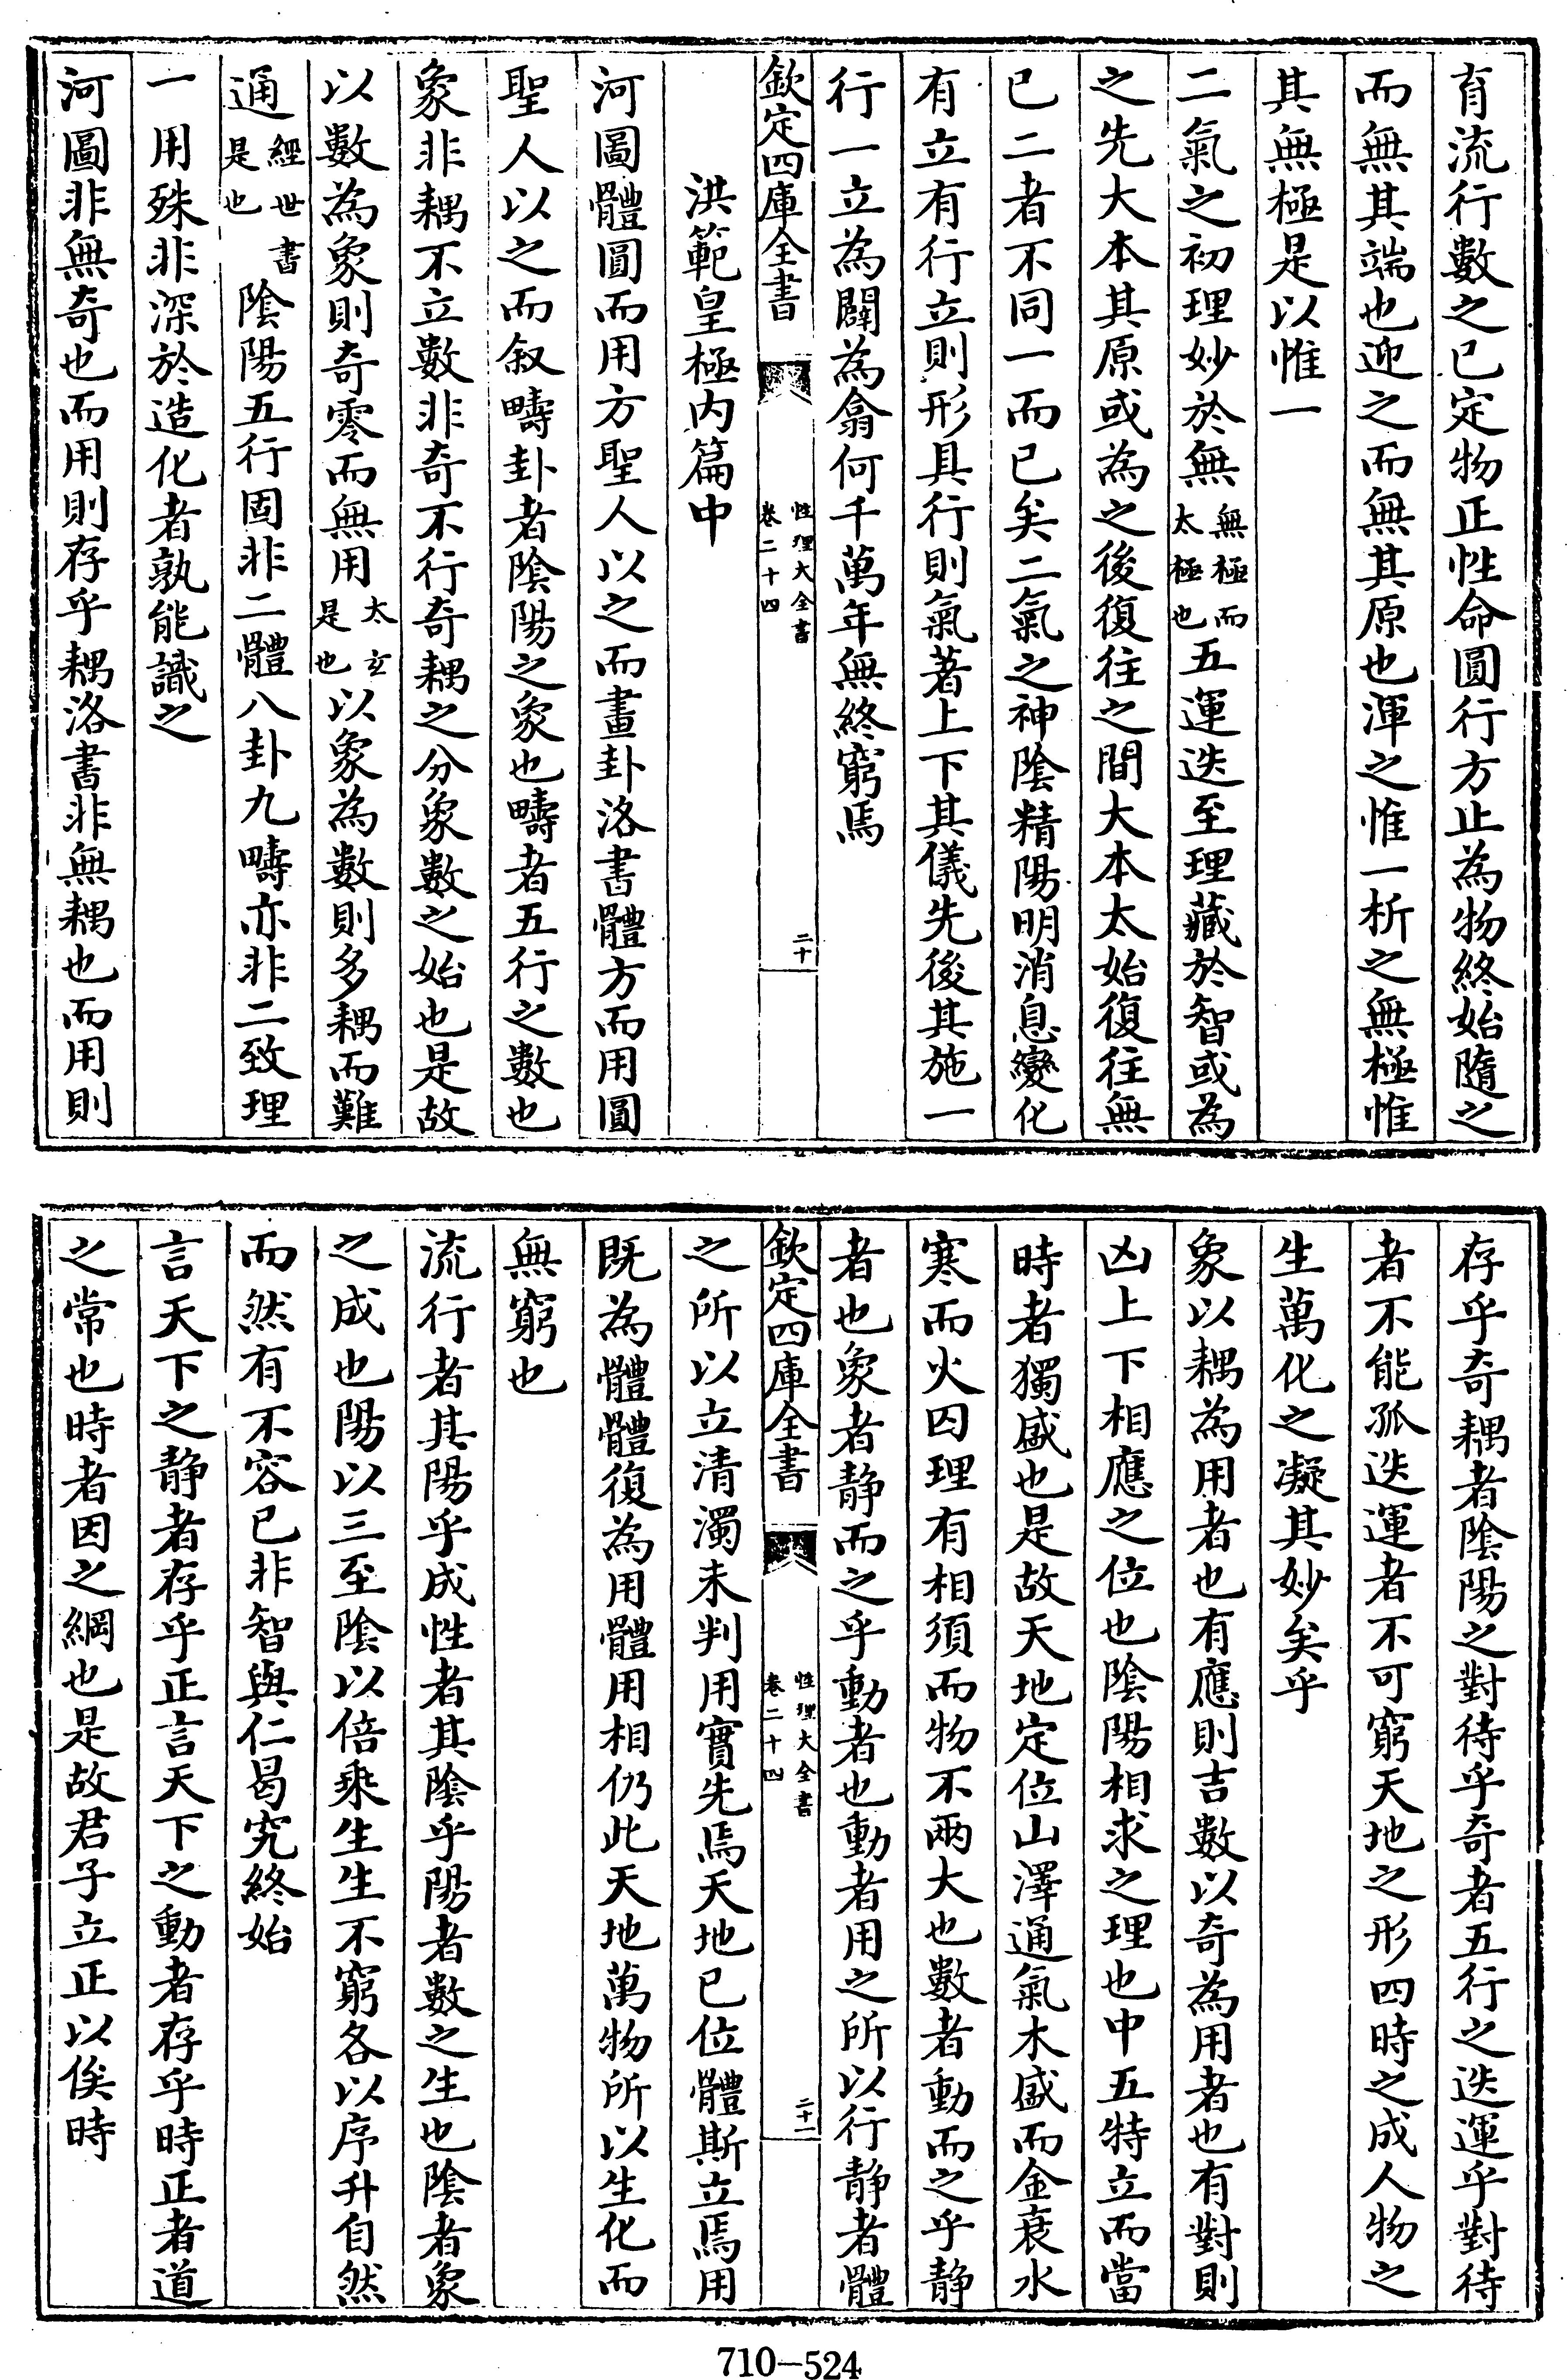 育流行數之已定物正性命圓行方止為物終始隨之
而無其端也迎之而無其原也渾之惟一析之無極惟
其無極是以惟一
二氣之初理妙於無無極而太極也五運迭至理藏於智或為
之先大本其原或為之後復往之間大本太始復往無
已二者不同一而已矣二氣之神陰精陽明消息變化
有立有行立則形具行則氣著上下其儀先後其施一
行一立為闢為翕何千萬年無終窮焉
欽定四庫全書
性理大全書
卷二十四
二十
洪範皇極內篇中
河圖體圓而用方聖人以之而畫卦洛書體方而用圓
聖人以之而叙疇卦者陰陽之象也疇者五行之數也
象非耦不立數非奇不行奇耦之分象數之始也是故
以數為象則奇零而無用太玄是也以象為數則多耦而難
通經世書是也陰陽五行固非二體八卦九疇亦非二致理
一用殊非深於造化者孰能識之
河圖非無奇也而用則存乎耦洛書非無耦也而用則
存乎奇耦者陰陽之對待乎奇者五行之迭運乎對待
者不能孤迭運者不可窮天地之形四時之成人物之
生萬化之凝其妙矣乎
象以耦為用者也有應則吉數以奇為用者也有對則
凶上下相應之位也陰陽相求之理也中五特立而當
時者獨盛也是故天地定位山澤通氣木盛而金衰水
寒而火囚理有相須而物不兩大也數者動而之乎静
者也象者静而之乎動者也動者用之所以行静者體
欽定四庫全書
性理大全書
卷二十四
二十一
之所以立清濁未判用實先焉天地已位體斯立焉用
既為體體復為用體用相仍此天地萬物所以生化而
無窮也
流行者其陽乎成性者其陰乎陽者數之生也陰者象
之成也陽以三至陰以倍乘生生不窮各以序升自然
而然有不容已非智與仁曷究終始
言天下之静者存乎正言天下之動者存乎時正者道
之常也時者因之綱也是故君子立正以俟時
710-524